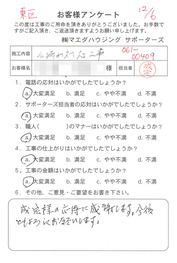 東区
12/6
お客様アンケート
この度は工事のご用命を頂きありがとうございました。お手数で
すがご記入頂き、ご返送頂きますようお願い申し上げます。
㈱マエダハウジング サポーターズ
061-
00409
施工内容
お客様名
担当
1．電話の応対はいかがでしたでしょうか？
a.大変満足 b.満足 c.やや不満 d.不満
2．サポーターズ担当者の応対はいかがでしたでしょうか？
a.大変満足 b.満足 c.やや不満 d.不満
3．職人( )のマナーはいかがでしたでしょうか？
a.大変満足 b.満足 c.やや不満 d.不満
4．工事の仕上がりはいかがでしたでしょうか？
a.大変満足 b.満足 c.やや不満 d.不満
5．工事の金額はいかがでしたでしょうか？
a.大変満足 b.満足 c.やや不満 d.不満
6．その他、ご意見・ご要望をお書き下さい。
応対に感謝します。今後